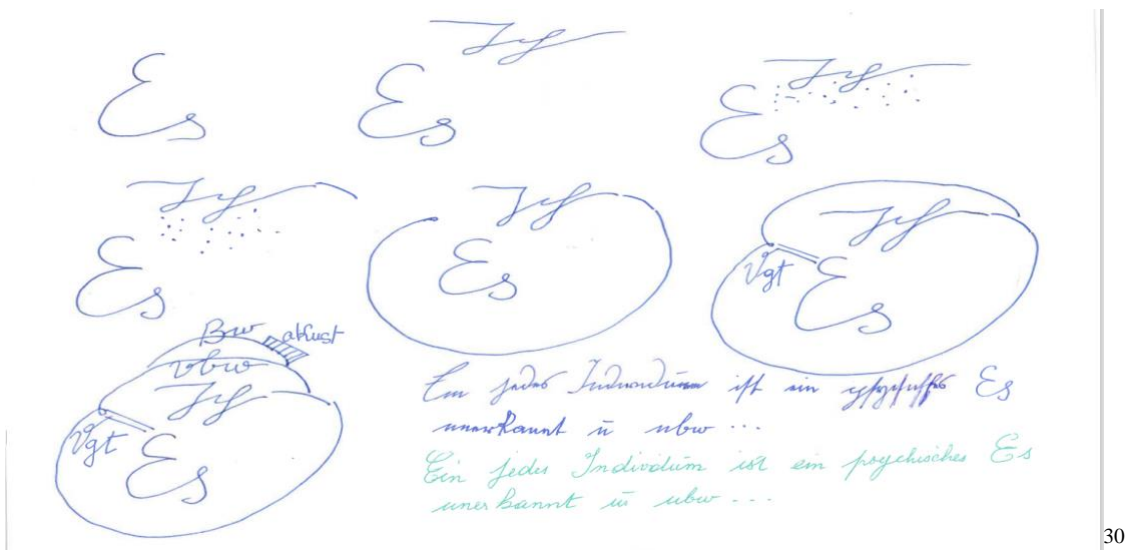 Es
Ich
Es
Ich
Es
Ich
Es
Ich
Es
Ich
Vgt
Es
Bw akust
Vbw
Ich
Vgt
Es
Ein jedes Individuum ist ein psychisches Es
unerkannt ū ubw ...
Ein jedes Individuum ist ein psychisches Es
unerkannt ū ubw ...
30